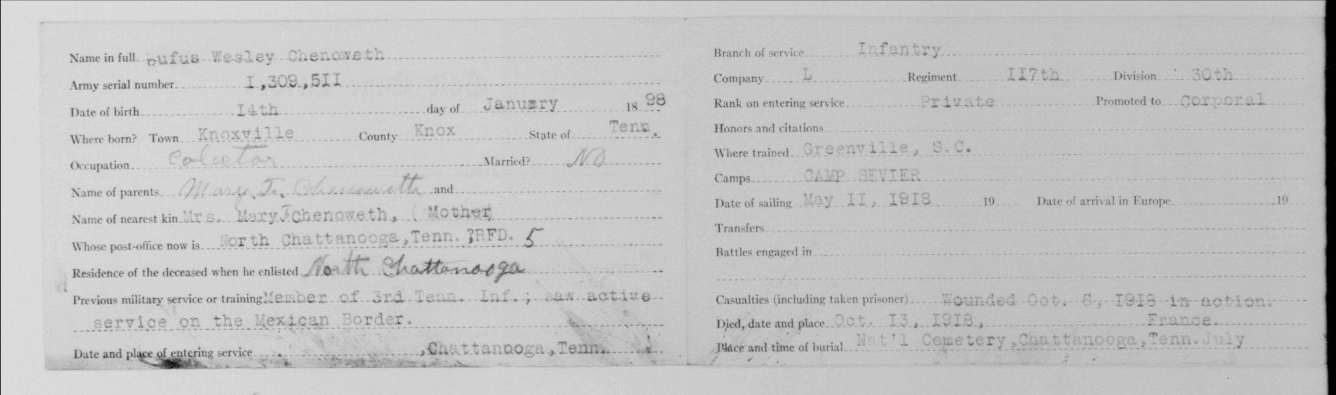 Name in full Rufus Wesley Chenoweth
Army serial number I,309,5II
Date of birth I4th day of January 18 98
Where born? Town Knoxville County Knox State of Tenn.
Occupation Colector Married? No
Name of parents Mary F. Chenoweth and
Name of nearest kin Mrs. Mary F Chenoweth, (Mother)
Whose post-office now is North Chattanooga, Tenn. ?RFD. 5
Residence of the deceased when he enlisted North Chattanooga
Previous military service or training Member of 3rd Tenn. Inf.; saw active
service on the Mexican Border.
Date and place of entering service ,Chattanooga,Tenn.
Branch of service Infantry
Company L Regiment II7th Division 30th
Rank on entering service Private Promoted to Corporal
Honors and citations
Where trained Greenville, S.C.
Camps CAMP SEVIER
Date of sailing May II, I9I8 19 Date of arrival in Europe 19
Transfers
Battles engaged in
Casualties (including taken prisoner) Wounded Oct. 8, I9I8 in action.
Died, date and place Oct. I3, I9I8, France.
Place and time of burial Nat'l Cemetery,Chattanooga,Tenn.July